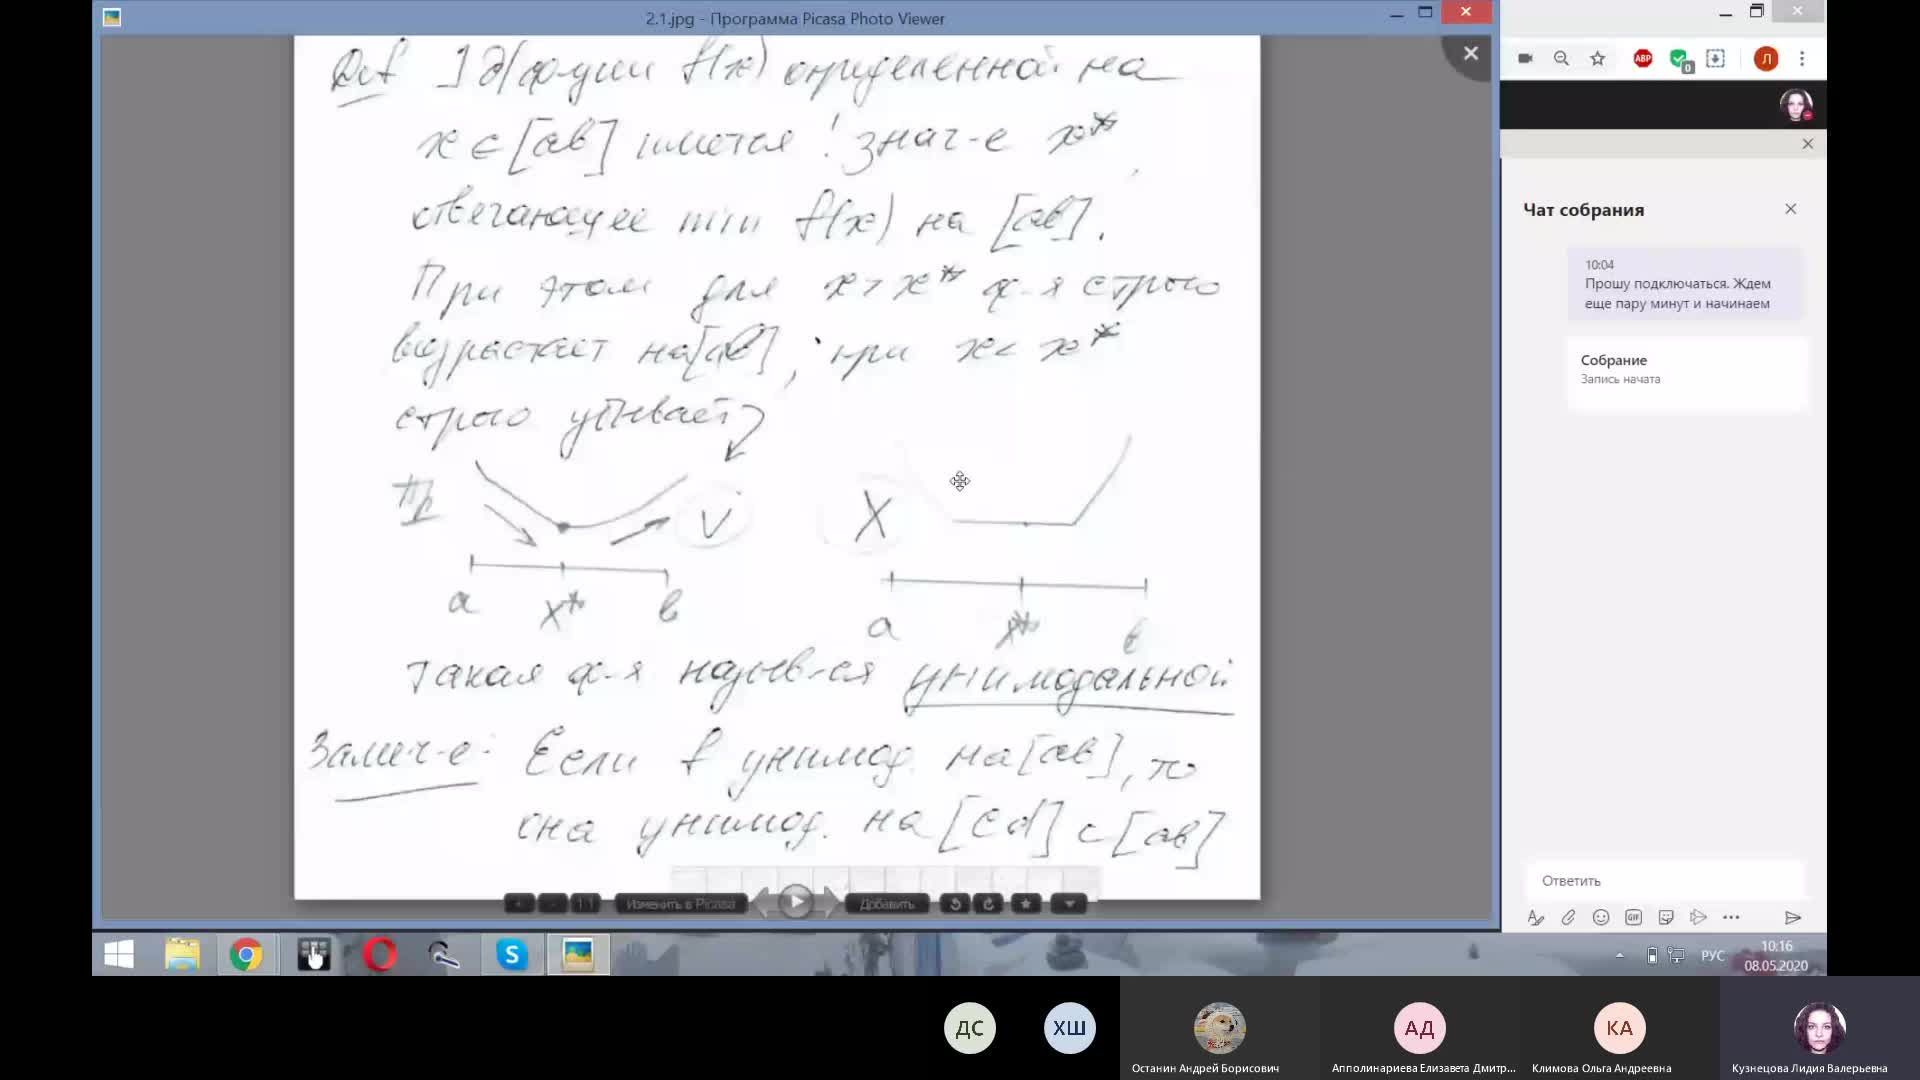 2.1.jpg - Программа Picasa Photo Viewer
Def ] д/ф-ции f(x) определенной на
x ∈ [ab] имеется ! знач-е x*,
отвечающее min f(x) на [ab].
При этом для x > x* ф-я строго
возрастает на [ab], при x < x*
строго убывает
Пр
V
X
a x* b
a x* b
Такая ф-я назыв-ся унимодальной
Замеч-е: Если f унимод. на [ab], то
она унимод. на [cd] ⊂ [ab]
1:1
Изменить в Picasa
Добавить
ABP
0
Л
Чат собрания
10:04
Прошу подключаться. Ждем
еще пару минут и начинаем
Собрание
Запись начата
Ответить
GIF
S
РУС
10:16
08.05.2020
ДС
ХШ
АД
КА
Останин Андрей Борисович
Апполинариева Елизавета Дмитр...
Климова Ольга Андреевна
Кузнецова Лидия Валерьевна